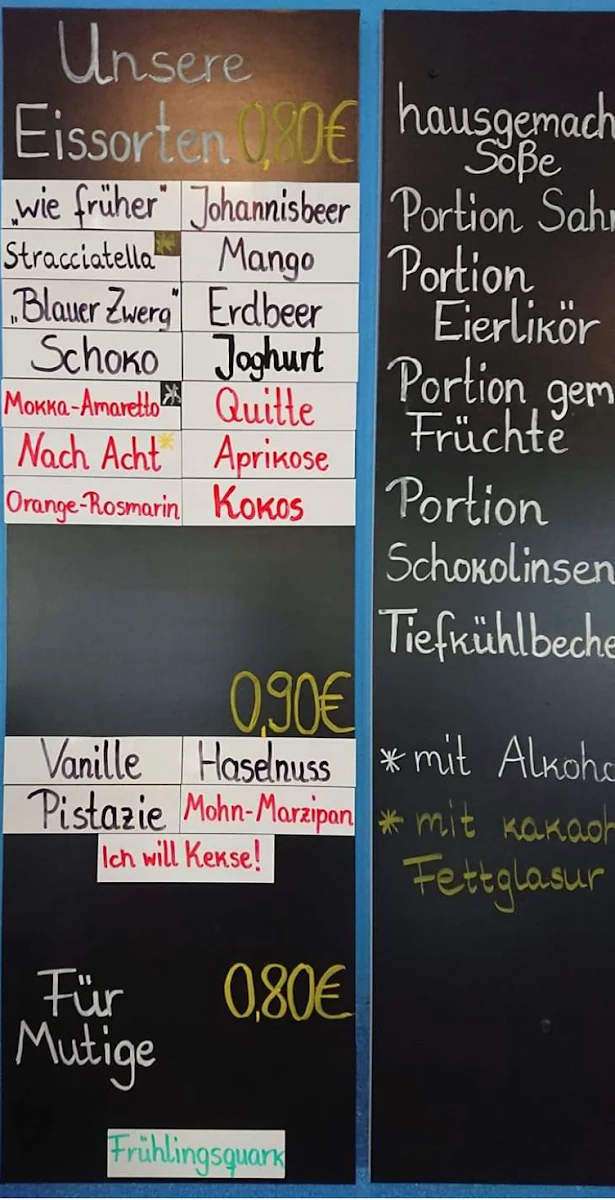 Unsere
Eissorten 0,80€
„wie früher" Johannisbeer
Stracciatella* Mango
„Blauer Zwerg" Erdbeer
Schoko Joghurt
Mokka-Amaretto* Quitte
Nach Acht* Aprikose
Orange-Rosmarin Kokos
0,90€
Vanille Haselnuss
Pistazie Mohn-Marzipan
Ich will Kekse!
Für 0,80€
Mutige
Frühlingsquark
hausgemach
Soße
Portion Sah
Portion
Eierlikör
Portion gem
Früchte
Portion
Schokolinsen
Tiefkühlbeche
* mit Alkoho
* mit kakaoh
Fettglasur